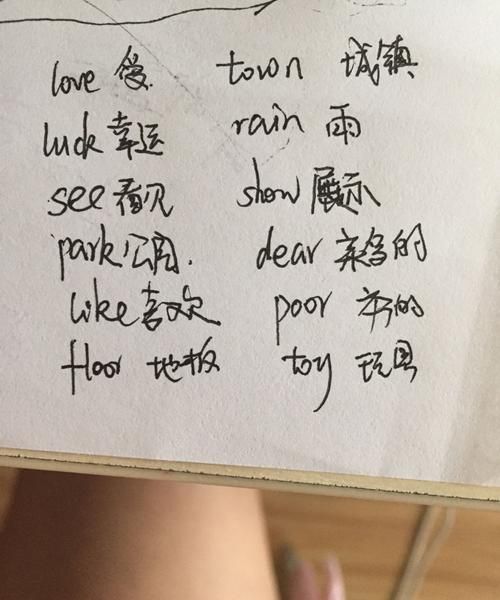 love 爱 town 城镇
luck 幸运 rain 雨
see 看见 show 展示
park 公园. dear 亲爱的
like 喜欢 poor 穷的
floor 地板 toy 玩具